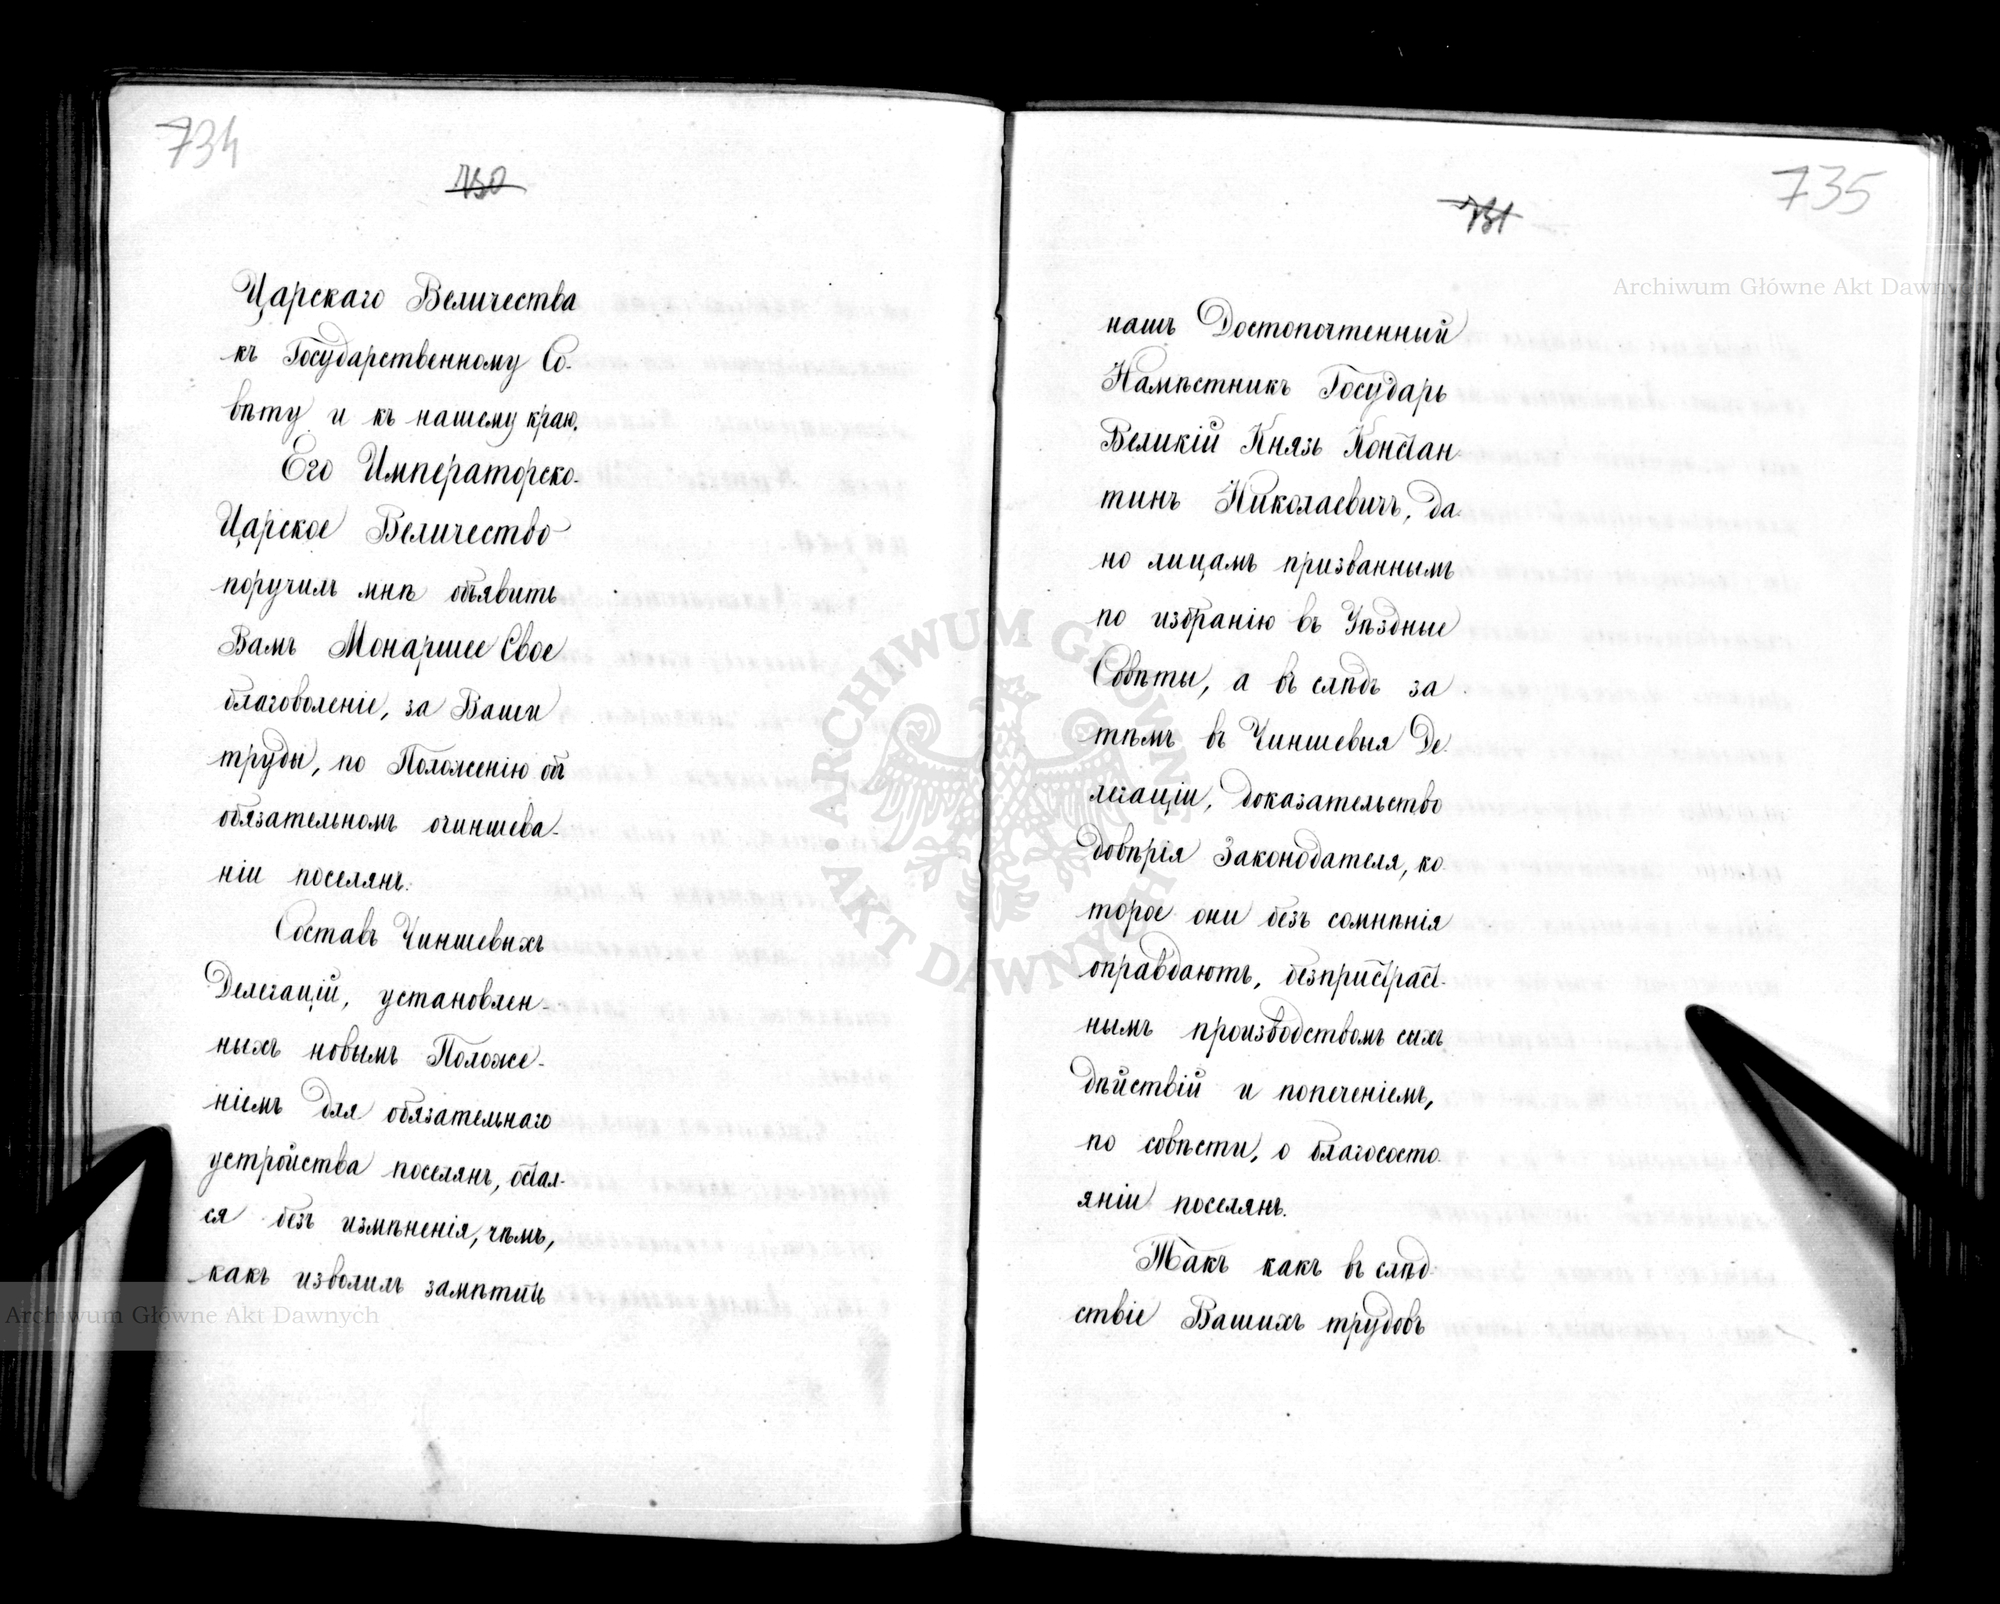 734
730
Царскаго Величества
къ Государственному Со-
вѣту и къ нашему краю.
Его Императорско-
Царское Величество
поручилъ мнѣ объявить
Вамъ Монаршее Свое
благоволеніе, за Ваши
труды, по Положенію объ
обязательномъ очиншева-
ніи поселянъ.
Составъ Чиншевыхъ
Делегацій, установлен-
ныхъ новымъ Положе-
ніемъ для обязательнаго
устройства поселянъ, остал-
ся безъ измѣненія, чѣмъ,
какъ изволилъ замѣтить
735
731
нашъ Достопочтенный
Намѣстникъ Государь
Великій Князь Констан-
тинъ Николаевичъ, да-
но лицамъ призваннымъ
по избранію въ Уѣздные
Совѣты, а въ слѣдъ за
тѣмъ въ Чиншевыя Де-
легаціи, доказательство
довѣрія Законодателя, ко-
торое они безъ сомнѣнія
оправдаютъ, безпристраст-
нымъ производствомъ сихъ
дѣйствій и попеченіемъ,
по совѣсти, о благосостo-
яніи поселянъ.
Такъ какъ въ слѣд-
ствіе Вашихъ трудовъ
Archiwum Główne Akt Dawnych
Archiwum Główne Akt Dawnych
ARCHIWUM GŁÓWNE AKT DAWNYCH